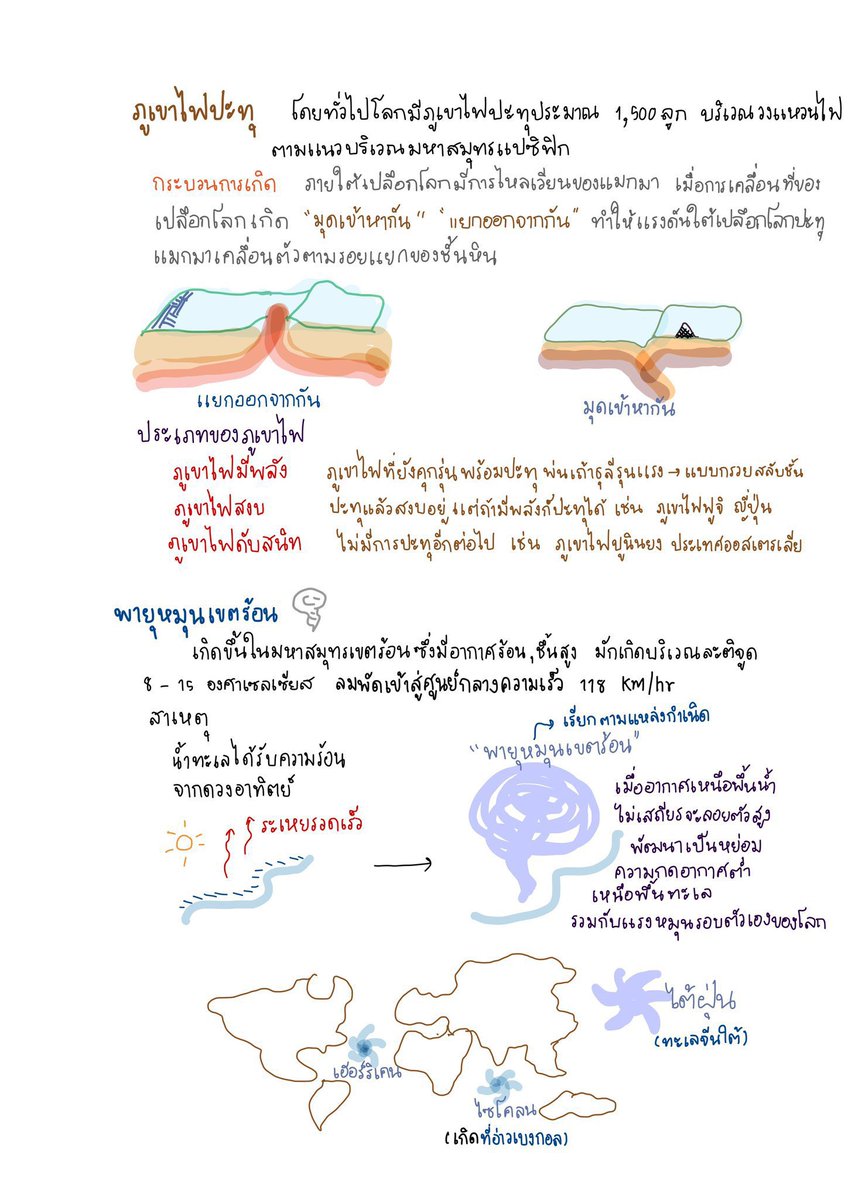 ภูเขาไฟปะทุ โดยทั่วไปโลกมีภูเขาไฟปะทุประมาณ 1,500 ลูก บริเวณวงแหวนไฟ
ตามแนวบริเวณมหาสมุทรแปซิฟิก
กระบวนการเกิด ภายใต้เปลือกโลกมีการไหลเวียนของแมกมา เมื่อการเคลื่อนที่ของ
เปลือกโลกเกิด "มุดเข้าหากัน" "แยกออกจากกัน" ทำให้แรงดันใต้เปลือกโลกปะทุ
แมกมาเคลื่อนตัวตามรอยแยกของชั้นหิน
แยกออกจากกัน
มุดเข้าหากัน
ประเภทของภูเขาไฟ
ภูเขาไฟมีพลัง ภูเขาไฟที่ยังคุกรุ่น พร้อมปะทุ พ่นเถ้าธุลีรุนแรง → แบบกรวยสลับชั้น
ภูเขาไฟสงบ ปะทุแล้วสงบอยู่ แต่ถ้ามีพลังก็ปะทุได้ เช่น ภูเขาไฟฟูจิ ญี่ปุ่น
ภูเขาไฟดับสนิท ไม่มีการปะทุอีกต่อไป เช่น ภูเขาไฟปูนินยง ประเทศออสเตรเลีย
พายุหมุนเขตร้อน
เกิดขึ้นในมหาสมุทรเขตร้อน ซึ่งมีอากาศร้อน,ชื้นสูง มักเกิดบริเวณละติจูด
8 - 15 องศาเซลเซียส ลมพัดเข้าสู่ศูนย์กลางความเร็ว 118 KM/hr
สาเหตุ
น้ำทะเลได้รับความร้อน
จากดวงอาทิตย์
ระเหยรวดเร็ว
เรียกตามแหล่งกำเนิด
"พายุหมุนเขตร้อน"
เมื่ออากาศเหนือพื้นน้ำ
ไม่เสถียรจะลอยตัวสูง
พัฒนาเป็นหย่อม
ความกดอากาศต่ำ
เหนือพื้นทะเล
รวมกับแรงหมุนรอบตัวเองของโลก
ไต้ฝุ่น
(ทะเลจีนใต้)
เฮอร์ริเคน
ไซโคลน
(เกิดที่อ่าวเบงกอล)